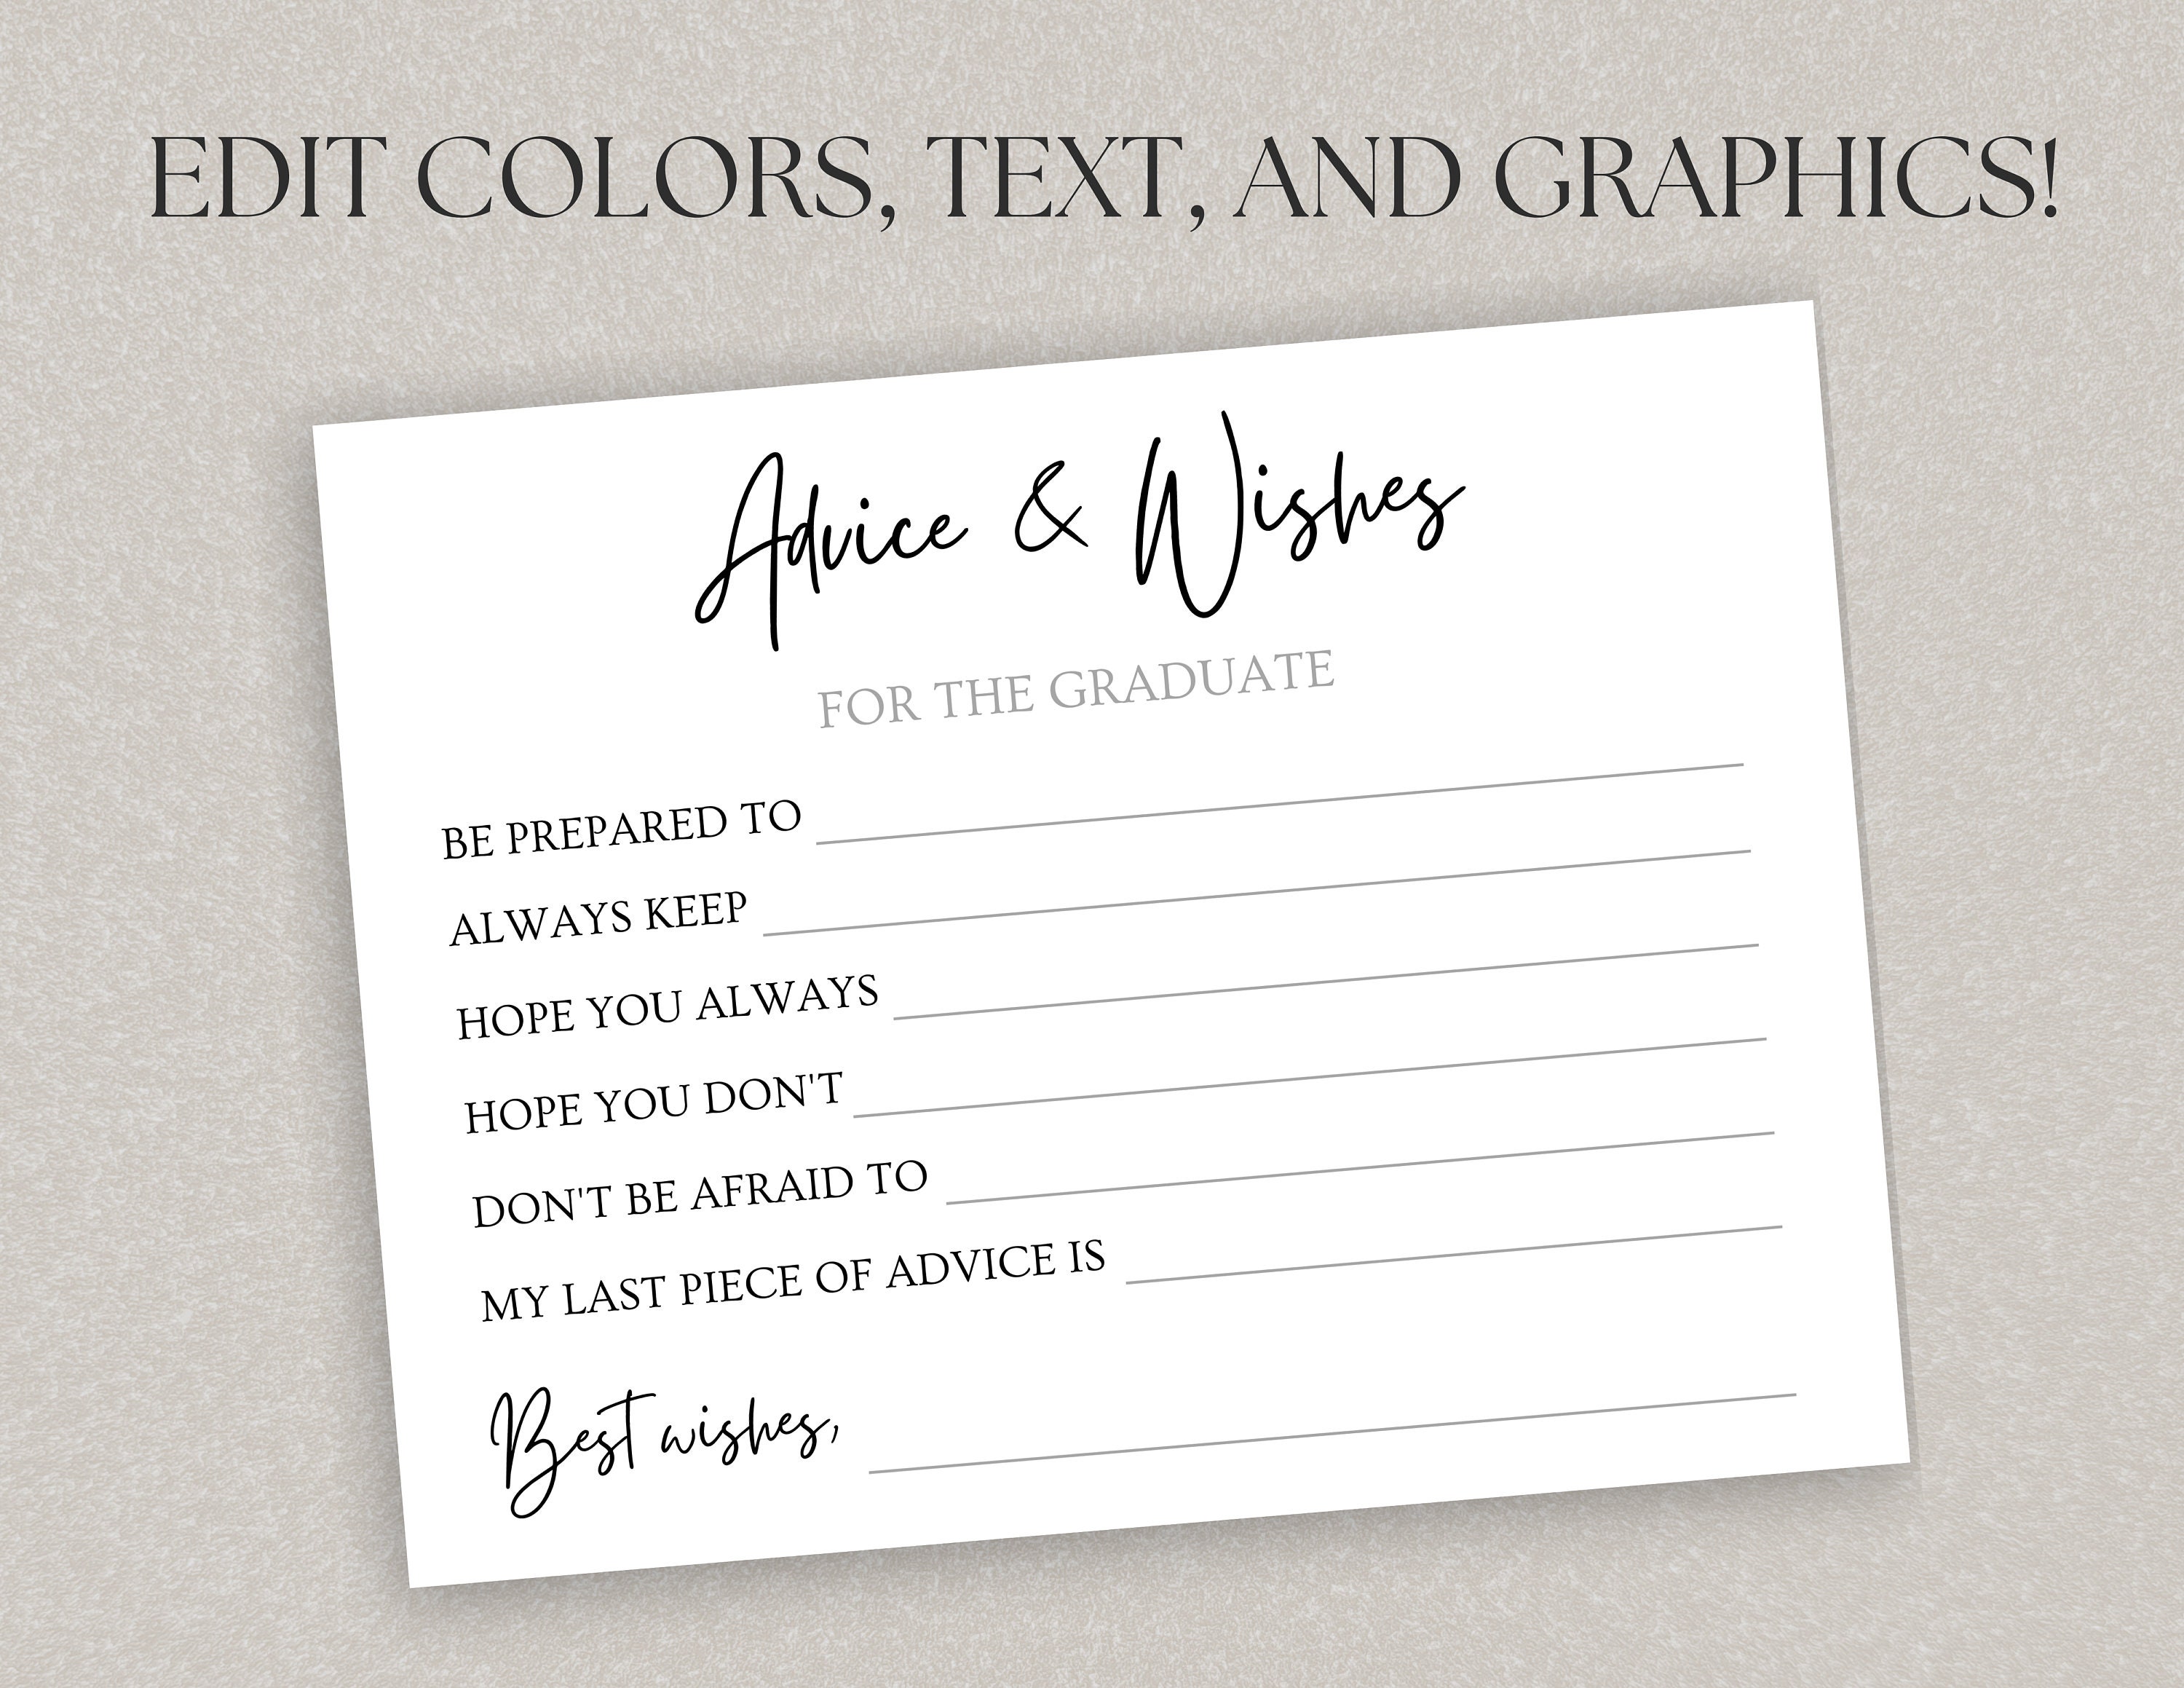 EDIT COLORS, TEXT, AND GRAPHICS!
Advice & Wishes
FOR THE GRADUATE
BE PREPARED TO
ALWAYS KEEP
HOPE YOU ALWAYS
HOPE YOU DON'T
DON'T BE AFRAID TO
MY LAST PIECE OF ADVICE IS
Best wishes,